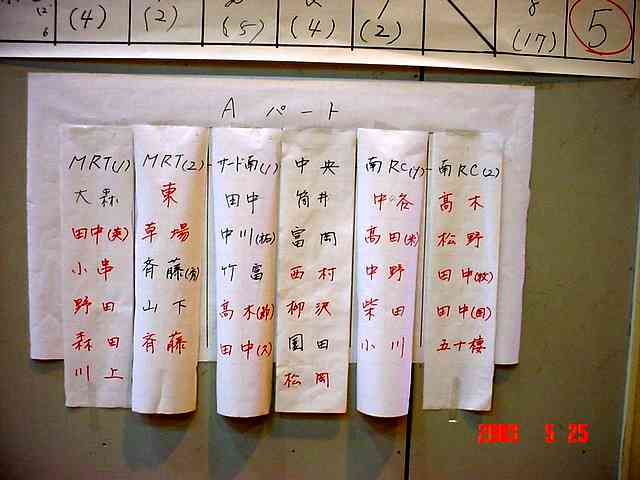 (4) (2) (5) (4) (2) 8 (17) 5
A パート
MRT(1) MRT(2) サード南(1) 中央 南RC(1) 南RC(2)
大森 東 田中 筒井 高木
田中(英) 草場 中川(祐) 富岡 高田(米) 松野
小串 斉藤 竹富 西村 中野 田中
野田 山下 高木 柳沢 柴田 田中
森田 斉藤 田中(久) 園田 小川 五十棲
川上 松岡
2003 5 25